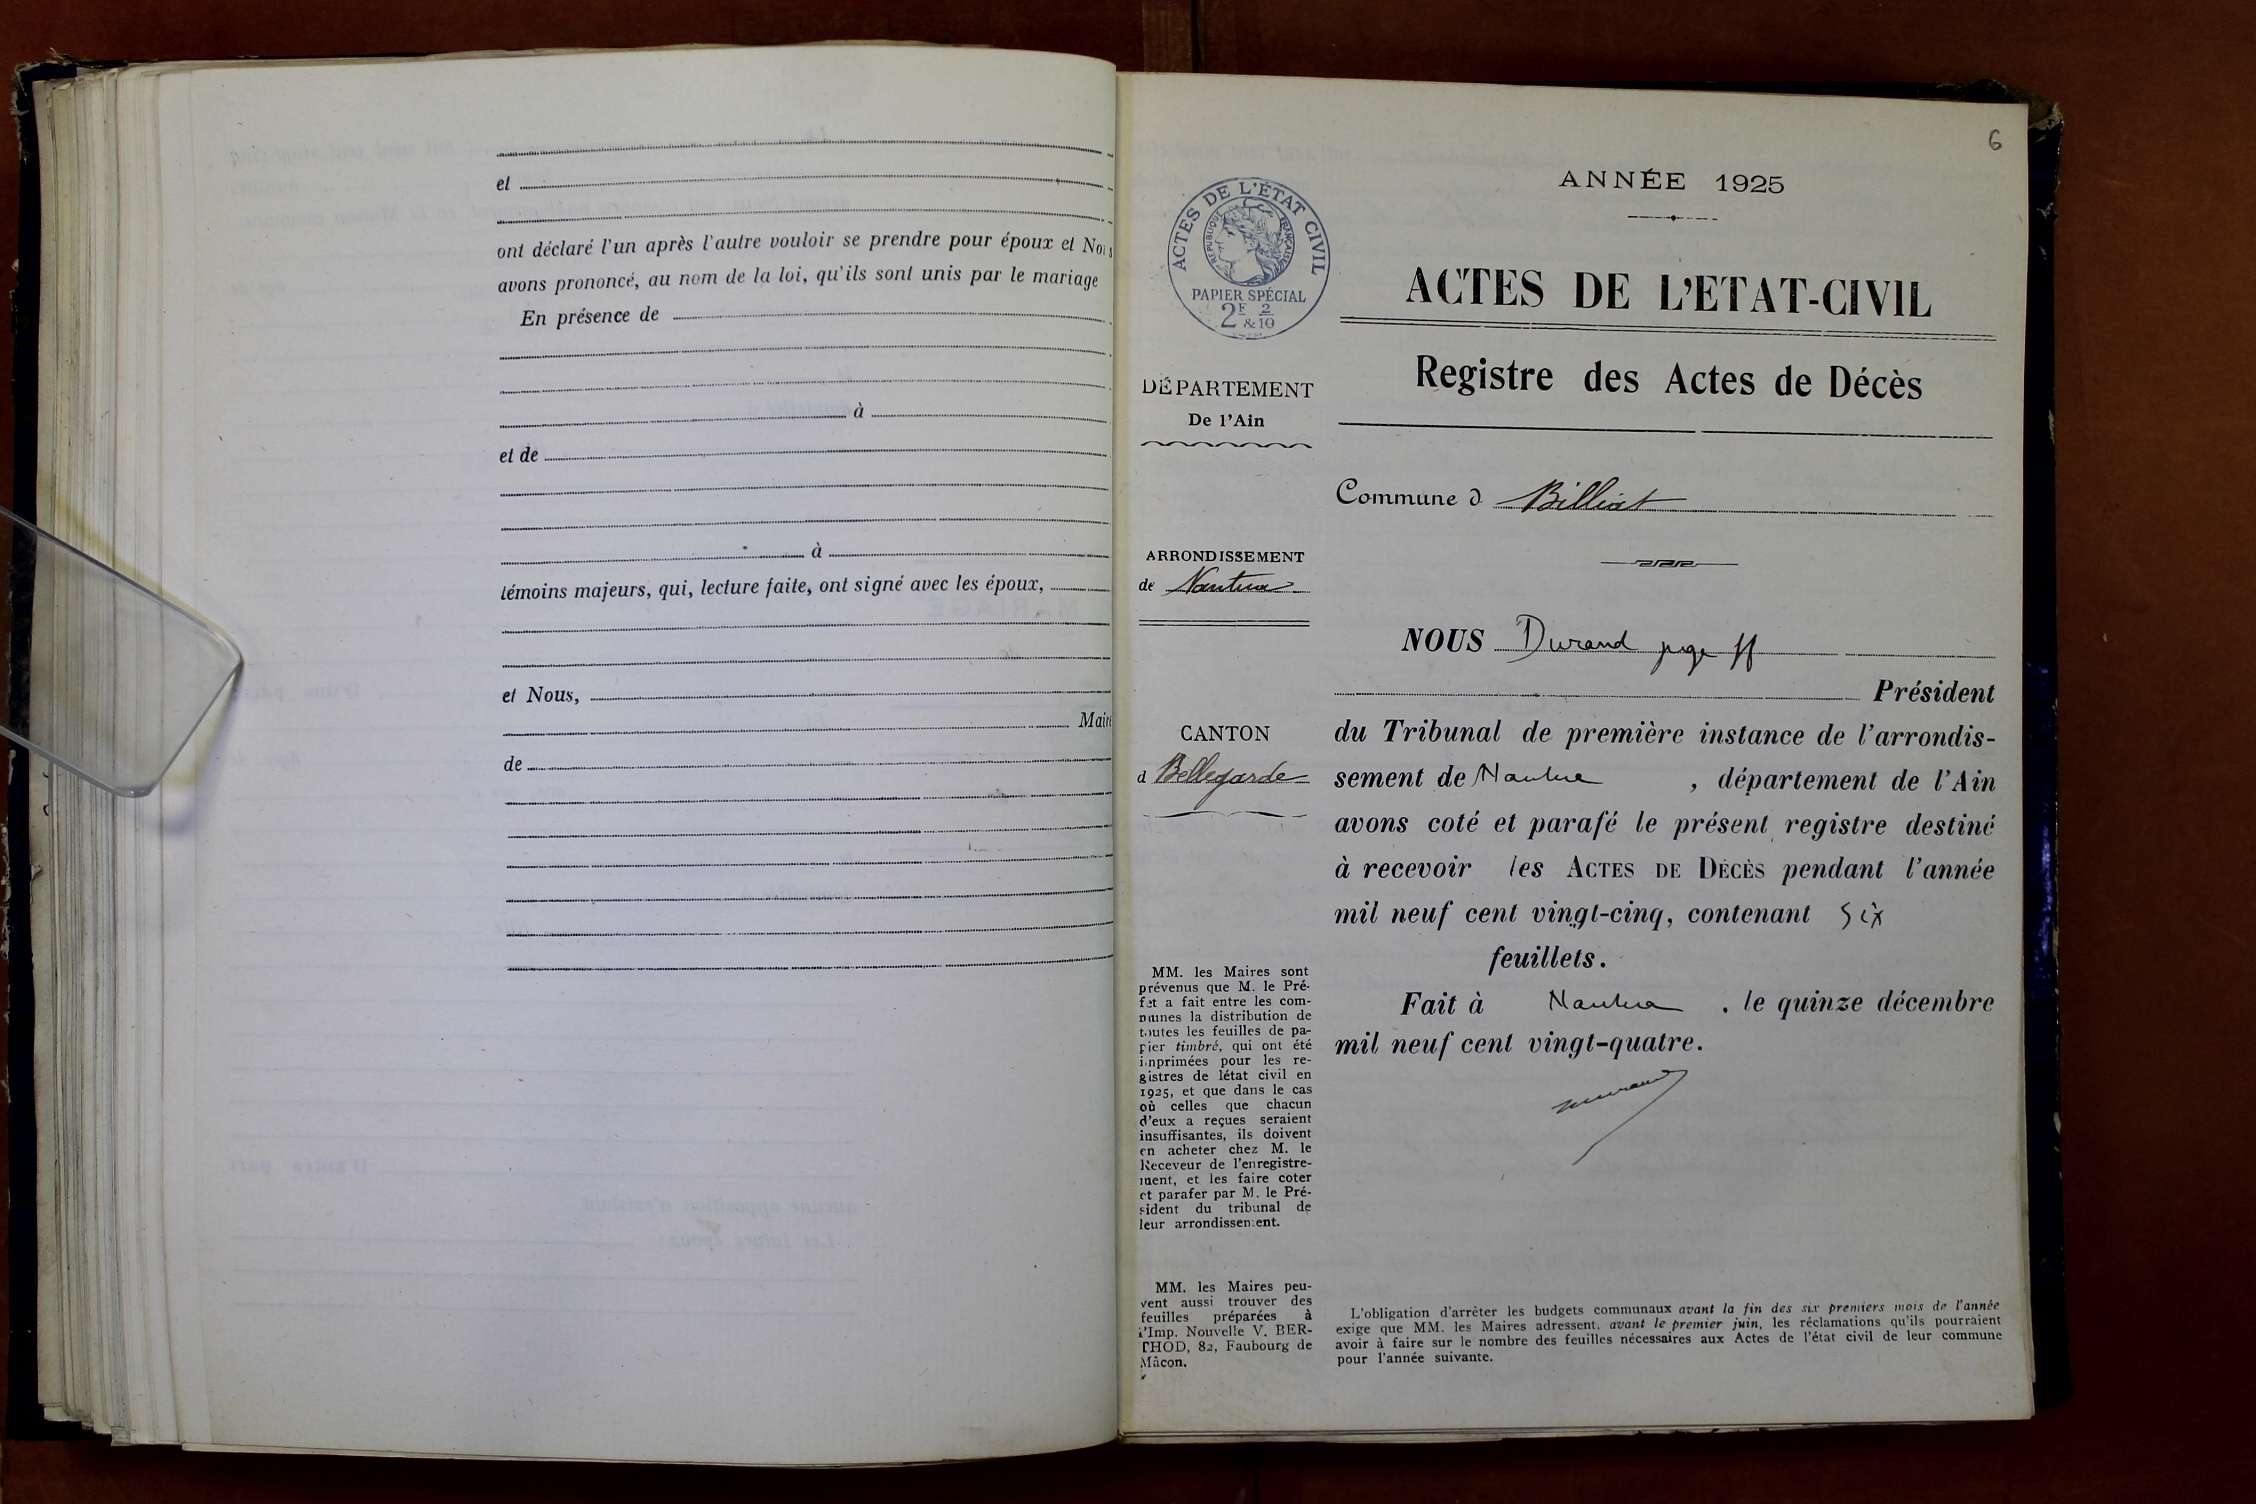 et
ont déclaré l'un après l'autre vouloir se prendre pour époux et Nous
avons prononcé, au nom de la loi, qu'ils sont unis par le mariage
En présence de
à
et de
à
témoins majeurs, qui, lecture faite, ont signé avec les époux,
et Nous,
Maire
de
6
ANNÉE 1925
ACTES DE L'ÉTAT CIVIL
RÉPUBLIQUE FRANÇAISE
PAPIER SPÉCIAL
2F & 2/10
ACTES DE L'ETAT-CIVIL
Registre des Actes de Décès
DÉPARTEMENT
De l'Ain
Commune d Billiat
ARRONDISSEMENT
de Nantua
CANTON
d Bellegarde
NOUS Durand juge ff
Président
du Tribunal de première instance de l'arrondis-
sement de Nantua , département de l'Ain
avons coté et parafé le présent registre destiné
à recevoir les ACTES DE DÉCÈS pendant l'année
mil neuf cent vingt-cinq, contenant six
feuillets.
Fait à Nantua , le quinze décembre
mil neuf cent vingt-quatre.
MM. les Maires sont
prévenus que M. le Pré-
fet a fait entre les com-
munes la distribution de
toutes les feuilles de pa-
pier timbré, qui ont été
imprimées pour les re-
gistres de létat civil en
1925, et que dans le cas
où celles que chacun
d'eux a reçues seraient
insuffisantes, ils doivent
en acheter chez M. le
Receveur de l'enregistre-
ment, et les faire coter
et parafer par M. le Pré-
sident du tribunal de
leur arrondissement.
MM. les Maires peu-
vent aussi trouver des
feuilles préparées à
l'Imp. Nouvelle V. BER-
THOD, 82, Faubourg de
Mâcon.
L'obligation d'arrêter les budgets communaux avant la fin des six premiers mois de l'année
exige que MM. les Maires adressent, avant le premier juin, les réclamations qu'ils pourraient
avoir à faire sur le nombre des feuilles nécessaires aux Actes de l'état civil de leur commune
pour l'année suivante.